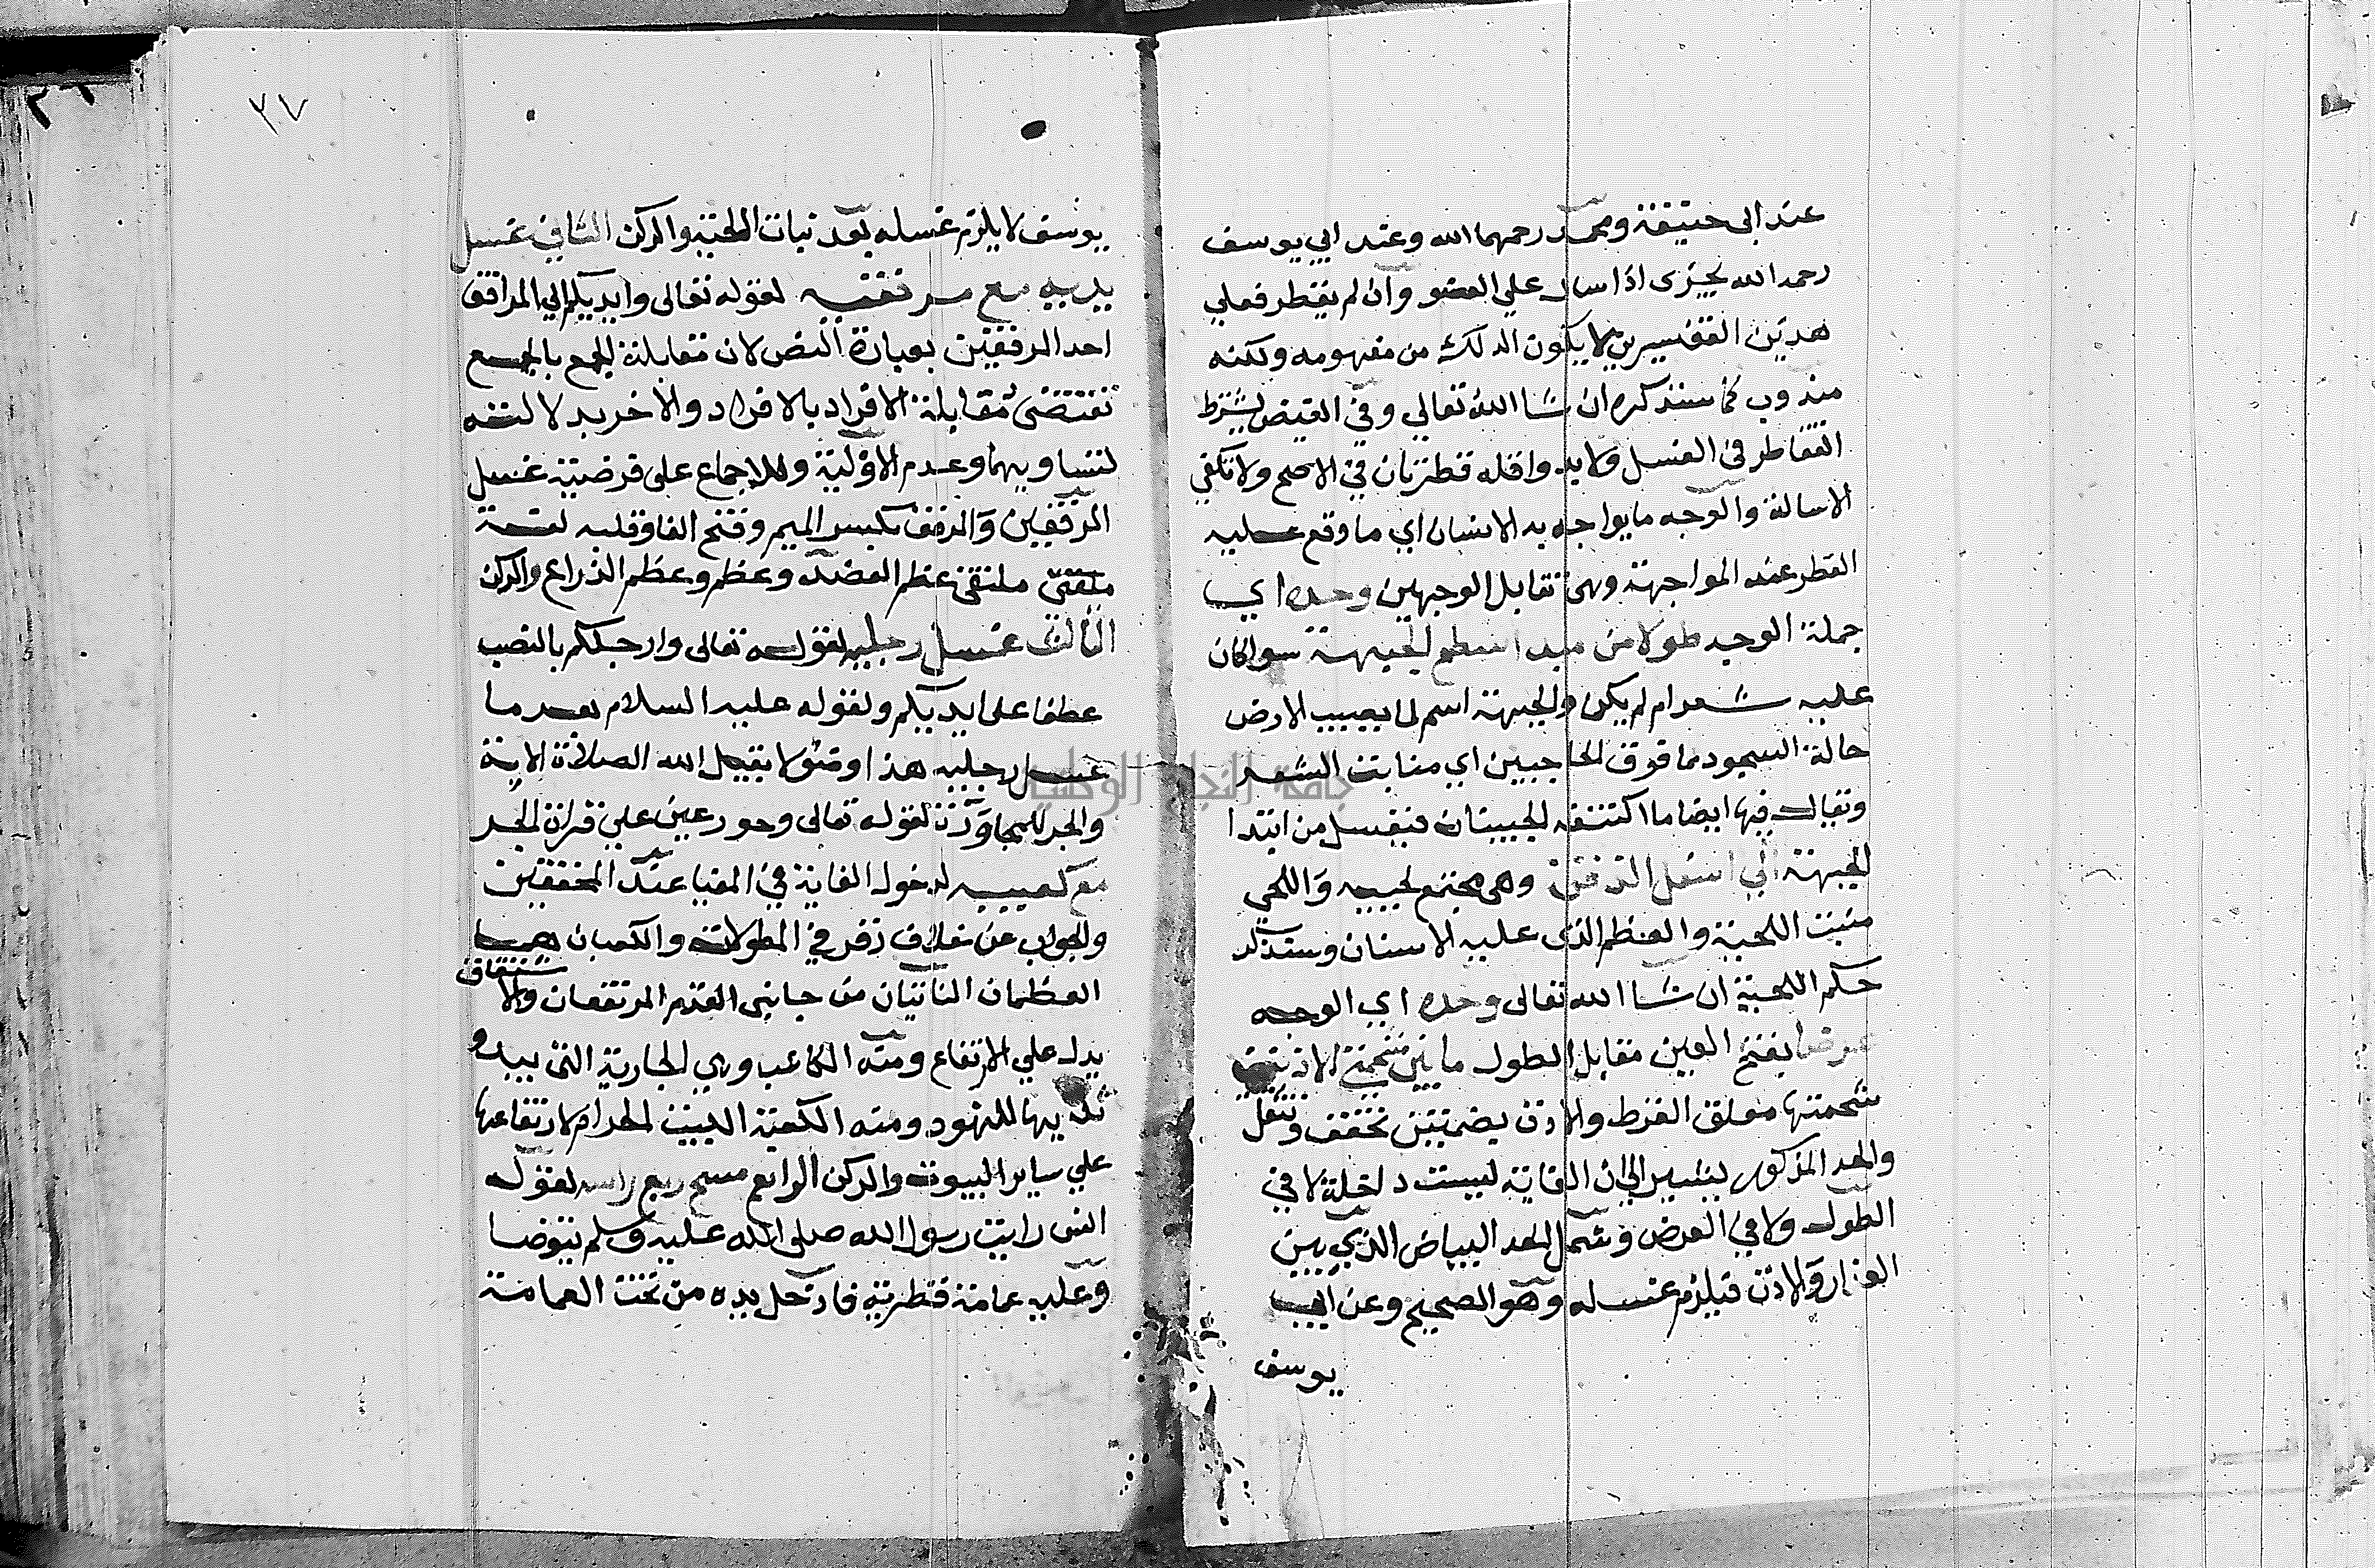 عند ابى حنيفة ومحمد رحمهما الله وعند ابي يوسف
رحمه الله يجزى اذا سال علي العضو وان لم يقطر فعلي
هذين التفسيرين لا يكون الدلك من مفهومه ولكنه
مندوب كما سنذكره ان شا الله تعالي وفي الفيض يشترط
التقاطر في الغسل ولا بد واقله قطرتان في الاصح ولا تكفي
الاسالة والوجه ما يواجه به الانسان اي ما وقع عليه
النظر عند المواجهة وهي تقابل الوجهين وحده اي
جملة الوجه طولا من مبدا سطح الجبهة سوا كان
عليه شعر ام لم يكن والجبهة اسم لما يصيب الارض
حالة السجود مما فوق الحاجبين اي منابت الشعر
ويقال فيها ايضا ما اكتنفه الجبينان فيغسل من ابتدا
الجبهة الي اسفل الذقن وهي مجتمع لحييه واللحي
منبت اللحية والعظم الذى عليه الاسنان وسنذكر
حكم اللحية ان شا الله تعالى وحده اي الوجه
عرضا بفتح العين مقابل الطول ما بين شحمتي الاذنين
شحمتها معلق القرط والاذن بضمتين تخفف وتثقل
والحد المذكور يشير الي ان الغاية ليست داخلة لا في
الطول ولا في العرض وشمل الحد البياض الذي بين
العذار والاذن فيلزم غسله وهو الصحيح وعن ابي
يوسف
٢٧
يوسف لا يلزم غسله بعد نبات اللحية والركن الثاني غسل
يديه مع مرفقيه لقوله تعالى وايديكم الي المرافق
احد المرفقين بعبارة النص لان مقابلة الجمع بالجمع
تقتضى مقابلة الافراد بالافراد والاخر بدلالته
لتساويهما وعدم الاولية وللاجماع على فرضية غسل
المرفقين والمرفق بكسر الميم وفتح الفا وقلبه لغة
ملتقى عظم العضد وعظم وعظم الذراع والركن
الثالث غسل رجليه لقوله تعالى وارجلكم بالنصب
عطفا على ايديكم ولقوله عليه السلام بعد ما
غسل رجليه هذا وضؤ لا يقبل الله الصلاة الا به
والجر للمجاورة لقوله تعالى وحور عين علي قراة الجر
مع كعبيه لدخول الغاية في المغيا عند المحققين
والجواب عن خلاف زفر في المطولات والكعبان هما
العظمان الناتيان من جانبى القدم المرتفعان والاشتقاق
يدل علي الارتفاع ومنه الكاعب وهي الجارية التي يبدو
ثدييها للنهود ومنه الكعبة البيت الحرام لارتفاعها
علي ساير البيوت والركن الرابع مسح ربع راسه لقول
انس رايت رسول الله صلى الله عليه وسلم يتوضا
وعليه عمامة قطرية فادخل يده من تحت العمامة